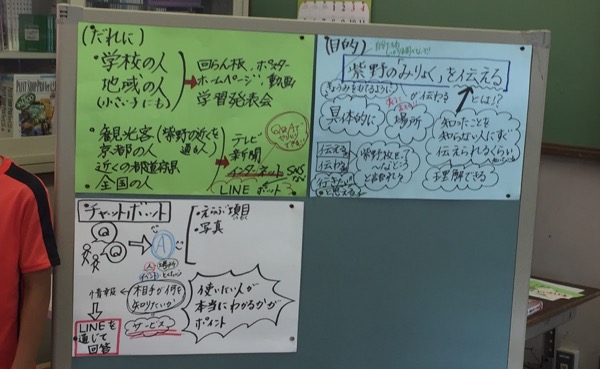 (だれに)
・学校の人
地域の人
(小さい子にも)
回らん板、ポスター
ホームページ、動画
学習発表会
・観光客(紫野の近くを通る人)
京都の人
近くの都道府県
全国の人
テレビ
新聞
インターネット SNS
LINE ボット
(目的)
紫野の「みりょく」を伝える
が伝わる
とは!?
具体的に
場所
知ったことを
知らない人にすぐ
伝えられるくらい
理解できる
伝える
伝わる
紫野校って
いいなどう
と思える
チャットボット
Q
Q
A
・えらぶ項目
・写真
人
場所
イベント
情報
相手が何を
知りたいか
サービス
LINEを
通じて
回答
使いたい人が
本当にわかるかが
ポイント